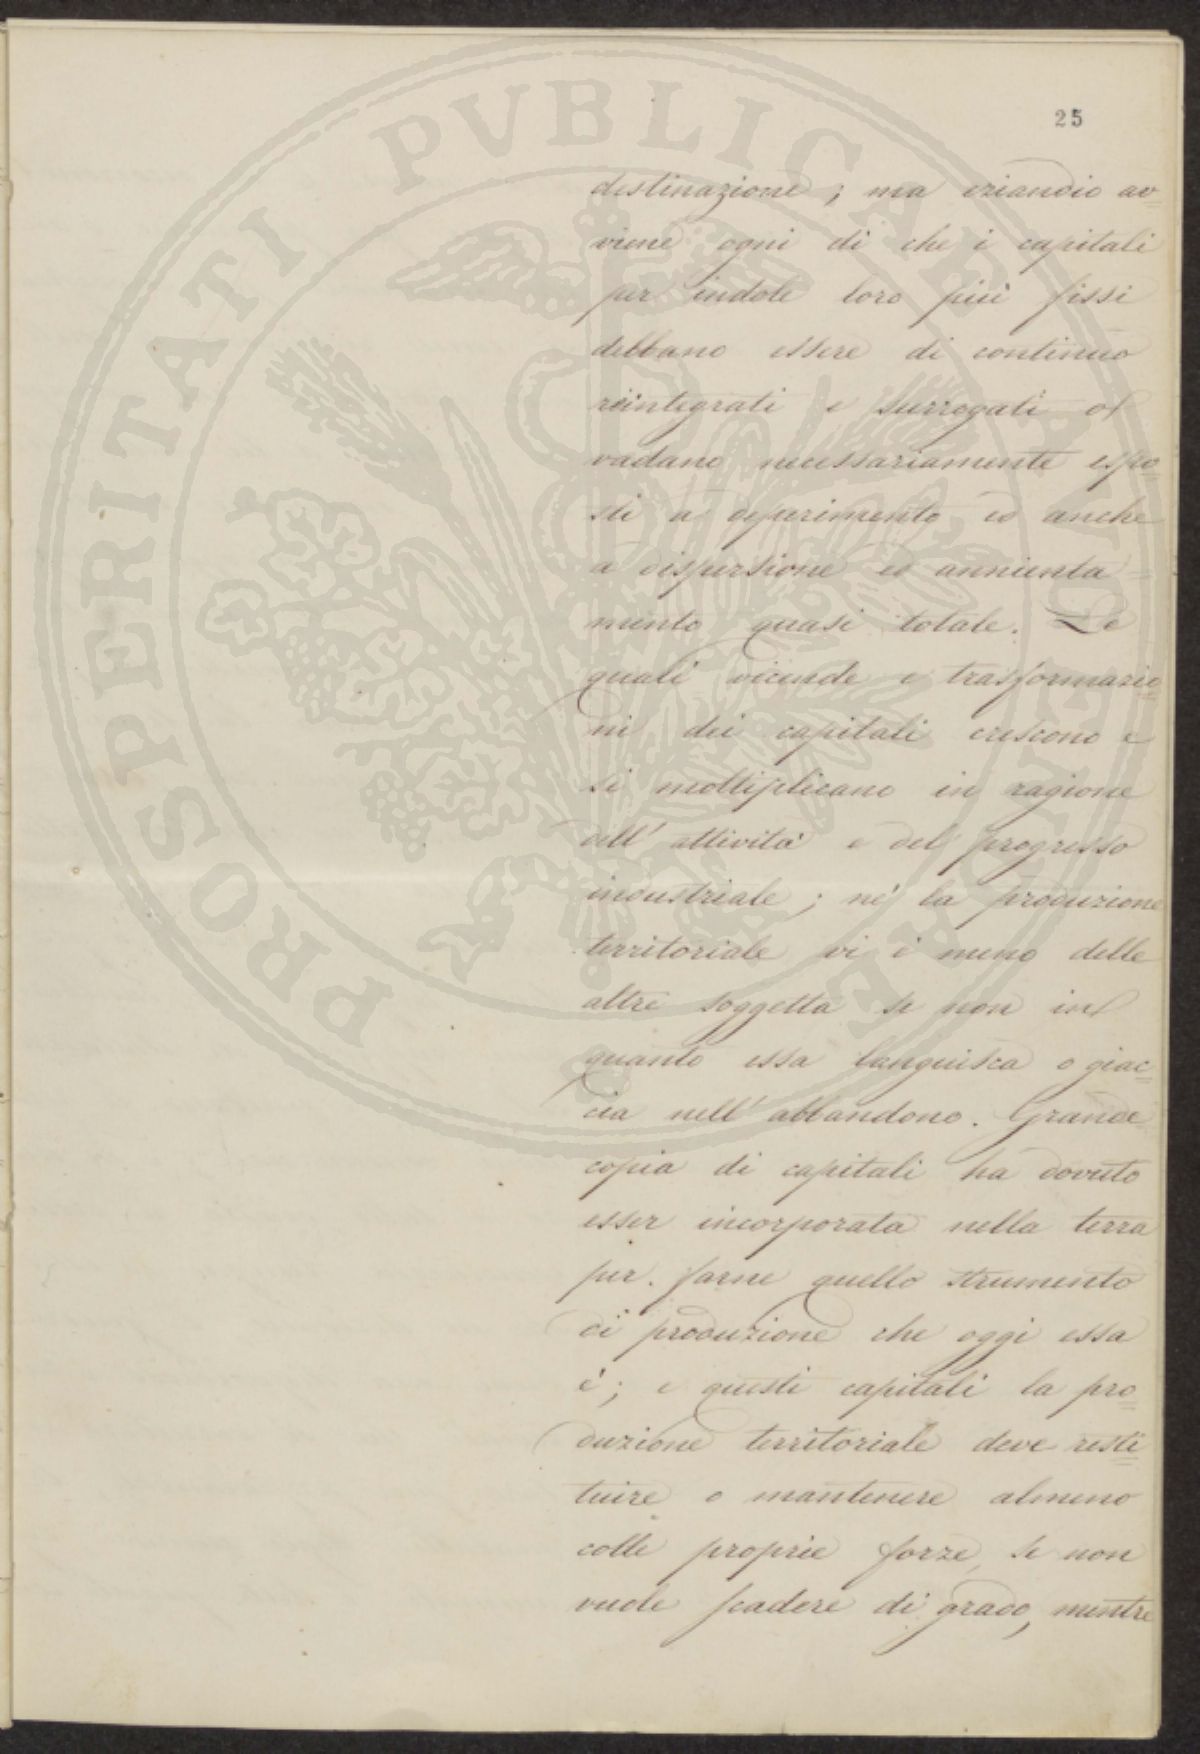 25
destinazione; ma eziandio av
viene ogni dì che i capitali
per indole loro più fissi
debbano essere di continuo
reintegrati e surrogati o
vadano necessariamente espo
sti a deperimento ed anche
a dispersione ed annienta
mento quasi totale. Le
quali vicende e trasformazio
ni dei capitali crescono e
si moltiplicano in ragione
dell' attività e del progresso
industriale; nè la produzione
territoriale vi è meno delle
altre soggetta se non in
quanto essa languisca o giac
cia nell' abbandono. Grande
copia di capitali ha dovuto
esser incorporata nella terra
per farne quello strumento
di produzione che oggi essa
è; e questi capitali la pro
duzione territoriale deve resti
tuire o mantenere almeno
colle proprie forze, se non
vuole scadere di grado, mentre
PROSPERITATI PVBLICAE AVGENDAE